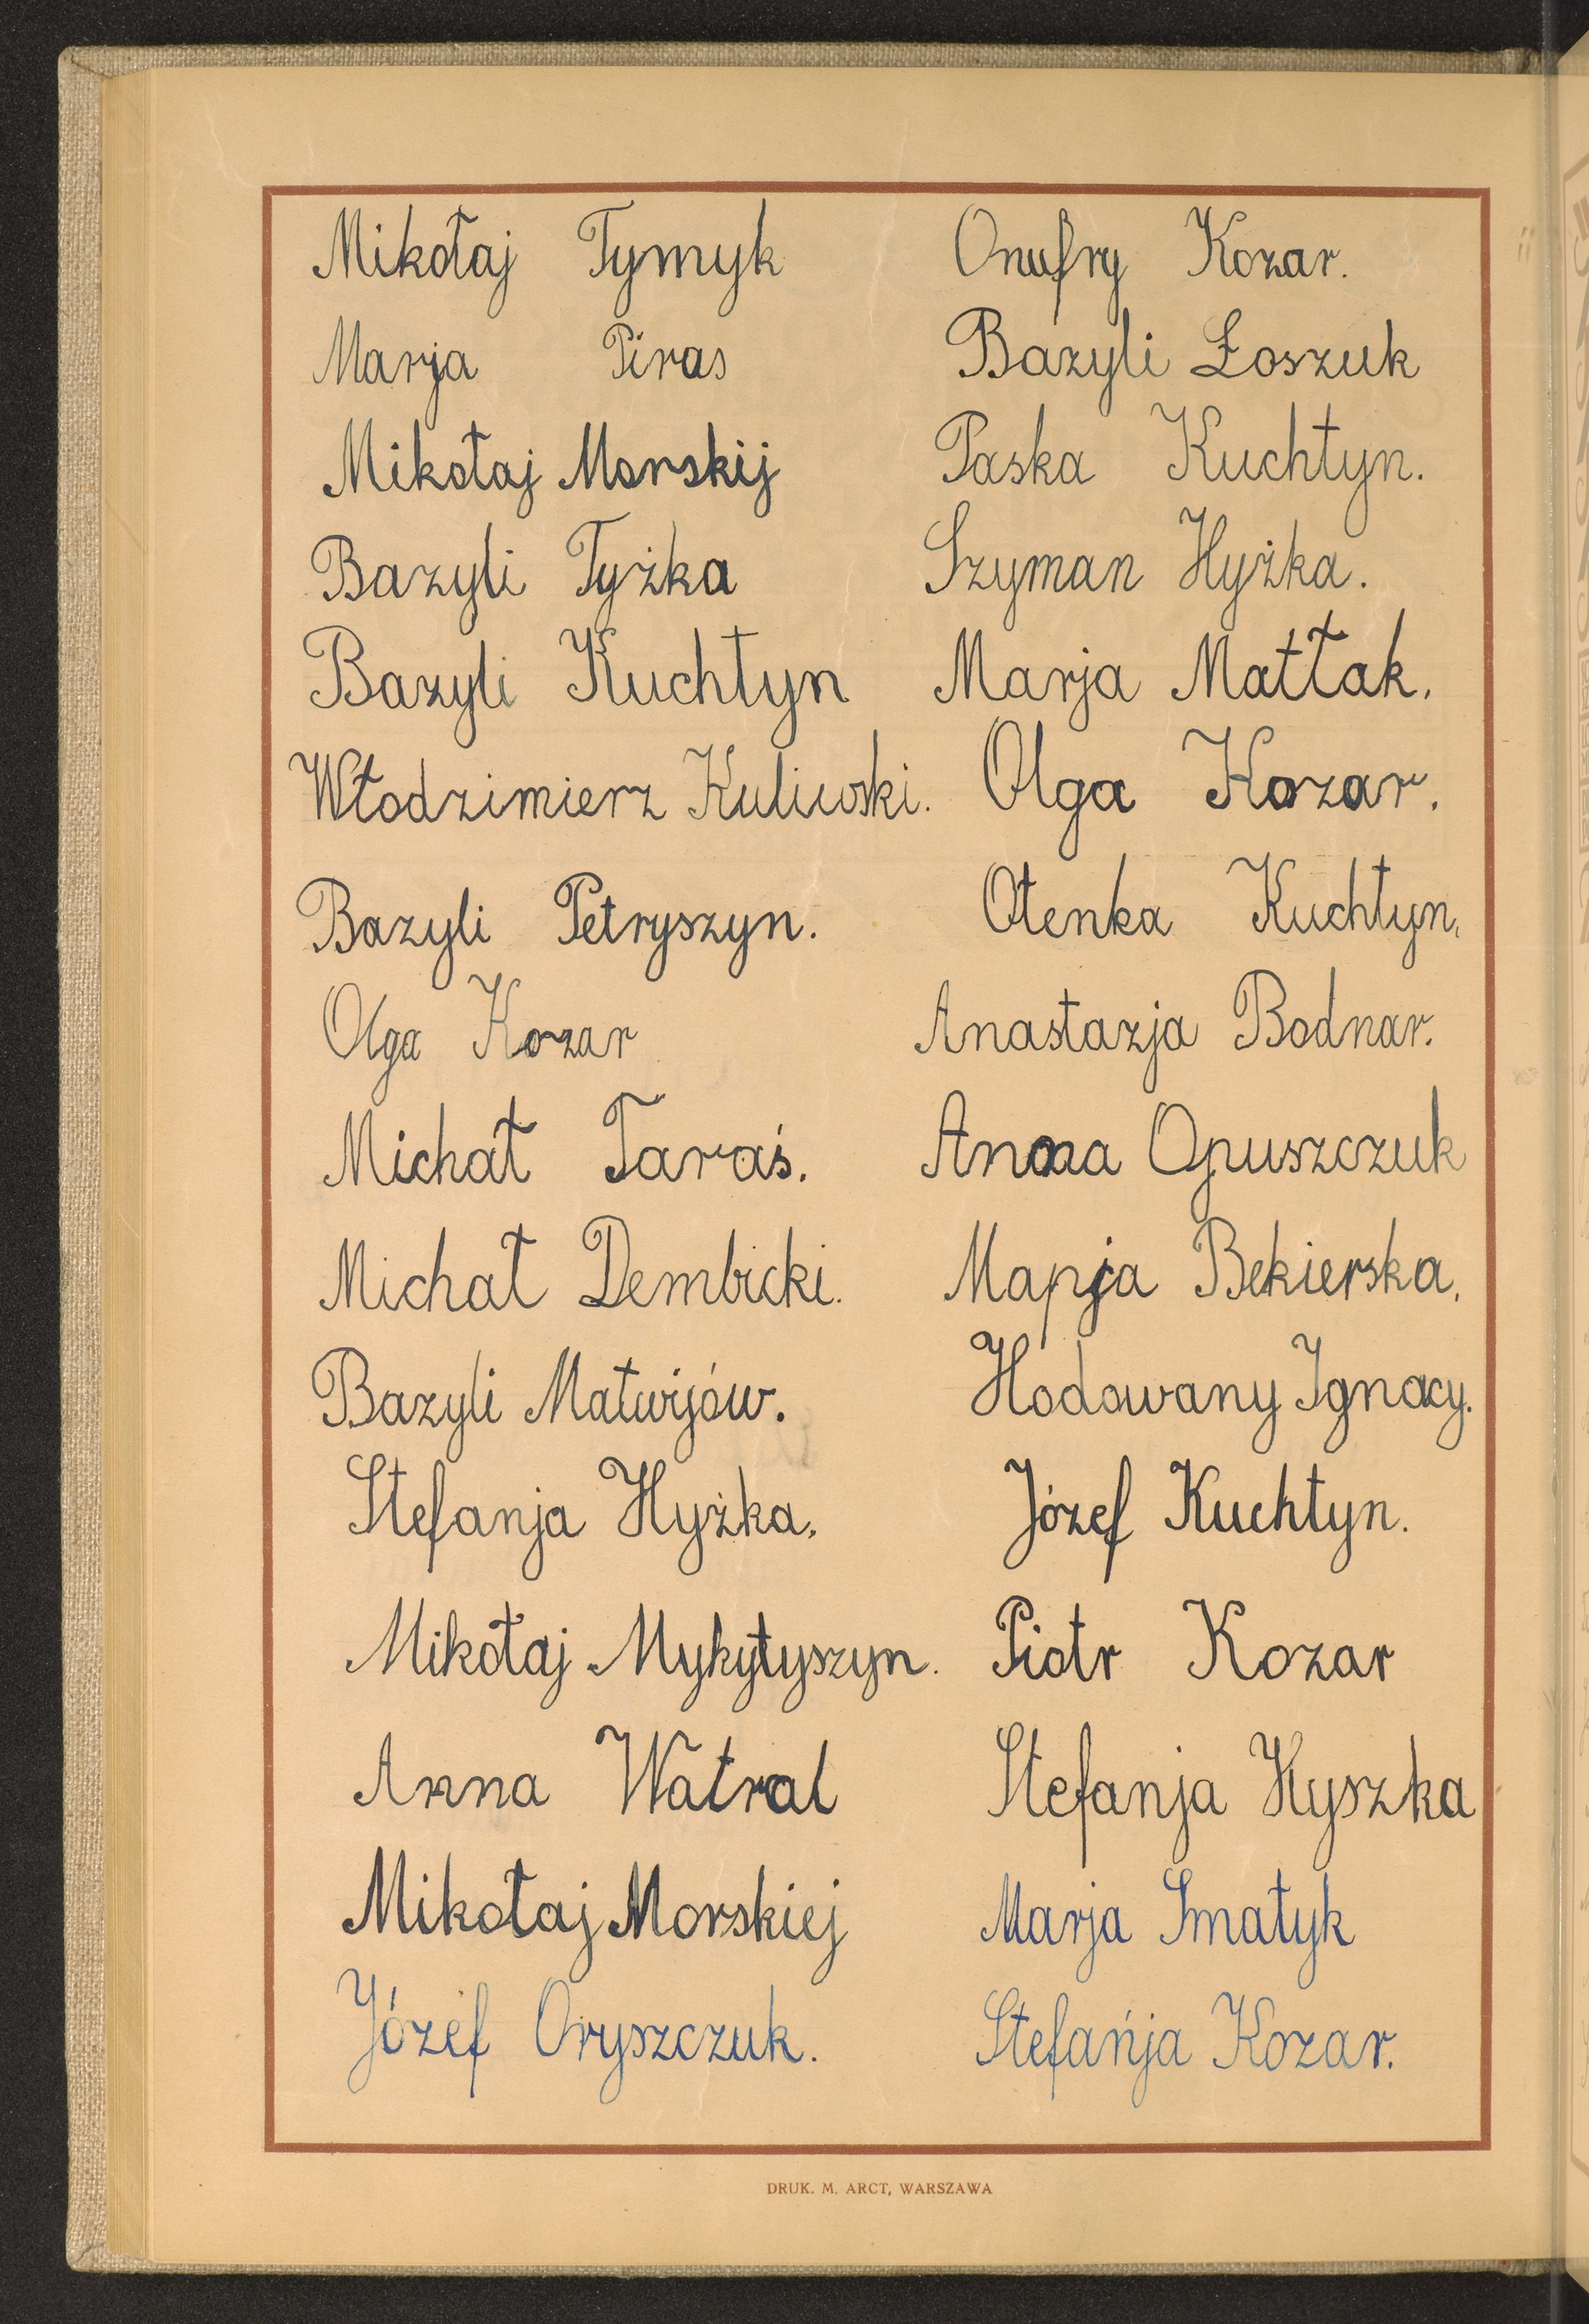 Mikołaj Tymyk
Marja Piras
Mikołaj Morskij
Bazyli Tyżka
Bazyli Kuchtyn
Włodzimierz Kuliwski.
Bazyli Petryszyn.
Olga Kozar
Michał Taraś.
Michał Dembicki.
Bazyli Matwijów.
Stefanja Hyżka.
Mikołaj Mykytyszyn.
Anna Watral
Mikołaj Morskiej
Józef Oryszczuk.
Onufry Kozar.
Bazyli Łoszuk
Paska Kuchtyn.
Szyman Hyżka.
Marja Matłak.
Olga Kozar.
Ołenka Kuchtyn.
Anastazja Bodnar.
Anna Opuszczuk
Mapja Bekierska.
Hodowany Ignacy.
Józef Kuchtyn.
Piotr Kozar
Stefanja Hyszka
Marja Smatyk
Stefańja Kozar.
DRUK. M. ARCT, WARSZAWA